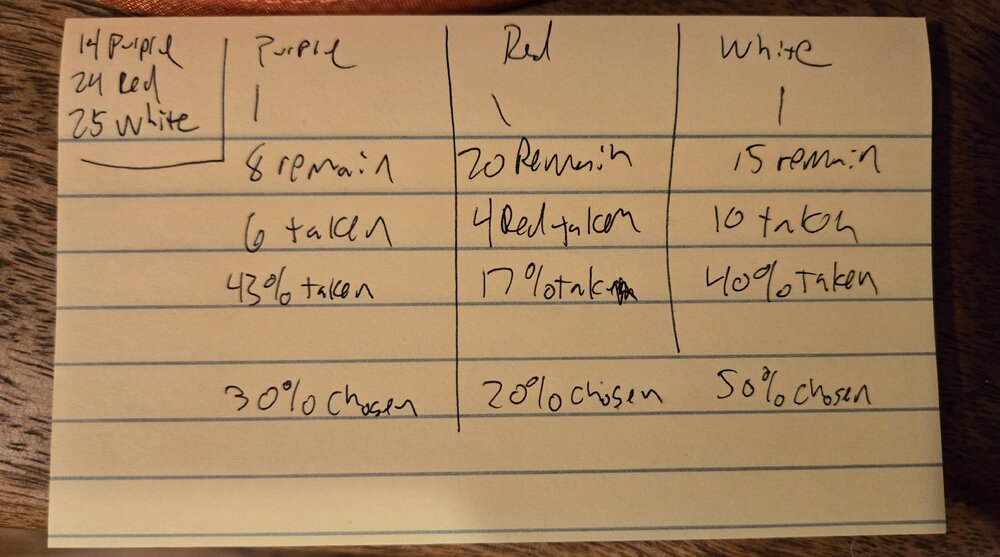 14 Purple
24 Red
25 White
Purple Red White
8 remain 20 Remain 15 remain
6 taken 4 Red taken 10 taken
43% taken 17% taken 40% taken
30% chosen 20% chosen 50% chosen